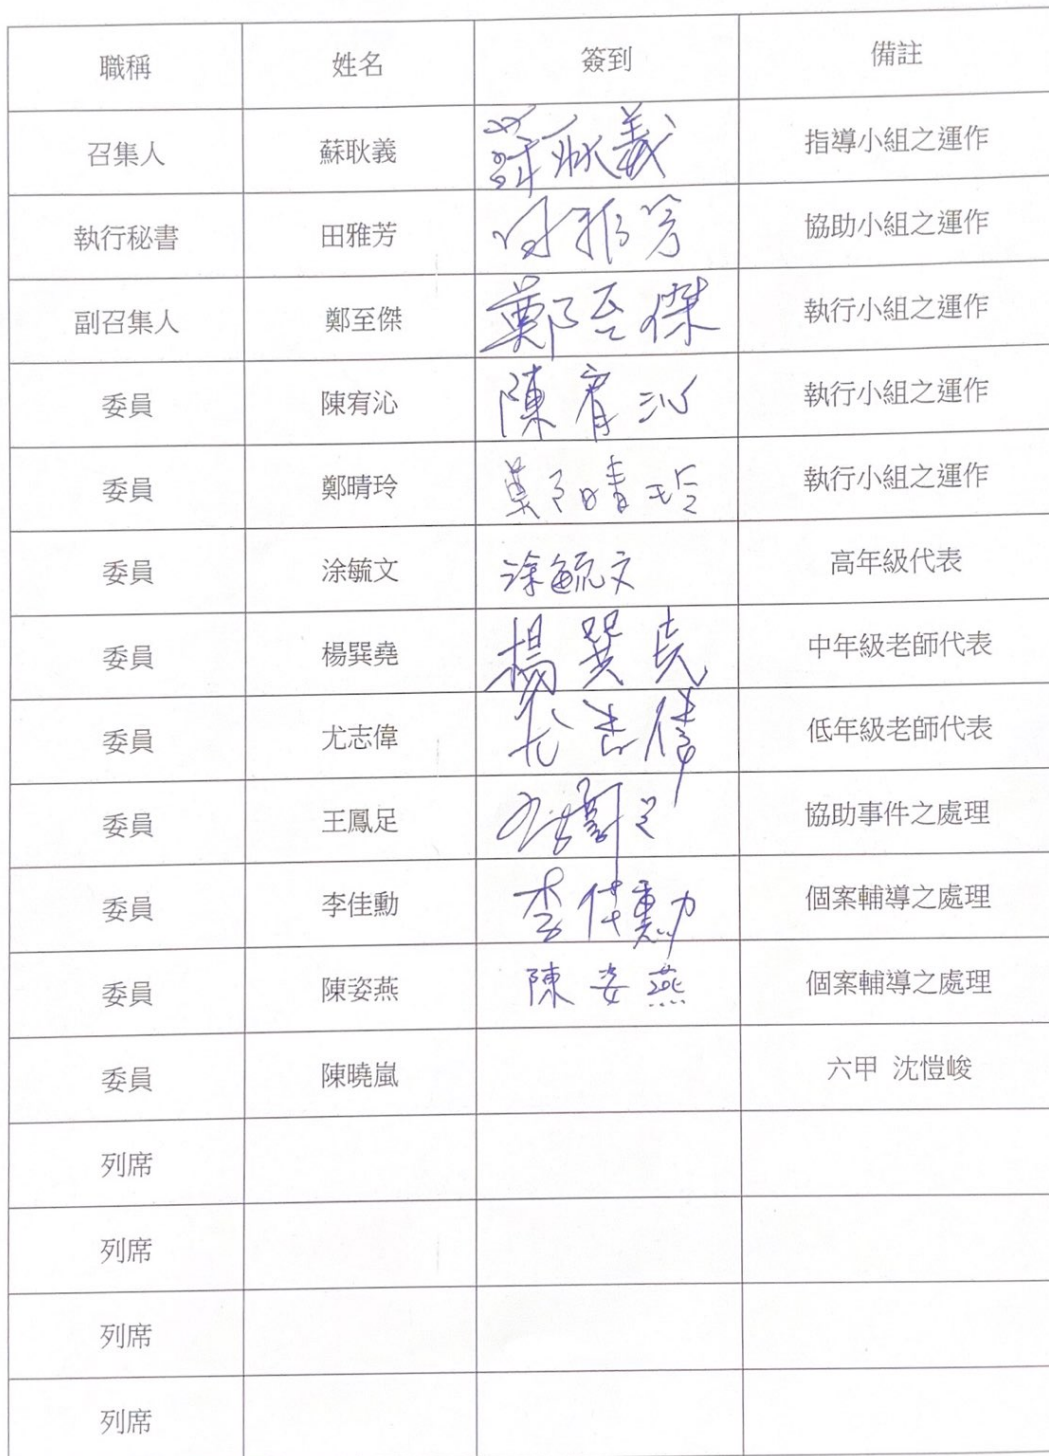 職稱 姓名 簽到 備註
召集人 蘇耿義 蘇耿義 指導小組之運作
執行秘書 田雅芳 田雅芳 協助小組之運作
副召集人 鄭至傑 鄭至傑 執行小組之運作
委員 陳宥沁 陳宥沁 執行小組之運作
委員 鄭晴玲 鄭晴玲 執行小組之運作
委員 涂毓文 涂毓文 高年級代表
委員 楊巽堯 楊巽堯 中年級老師代表
委員 尤志偉 尤志偉 低年級老師代表
委員 王鳳足 協助事件之處理
委員 李佳勳 李佳勳 個案輔導之處理
委員 陳姿燕 陳姿燕 個案輔導之處理
委員 陳曉嵐 六甲 沈愷峻
列席
列席
列席
列席